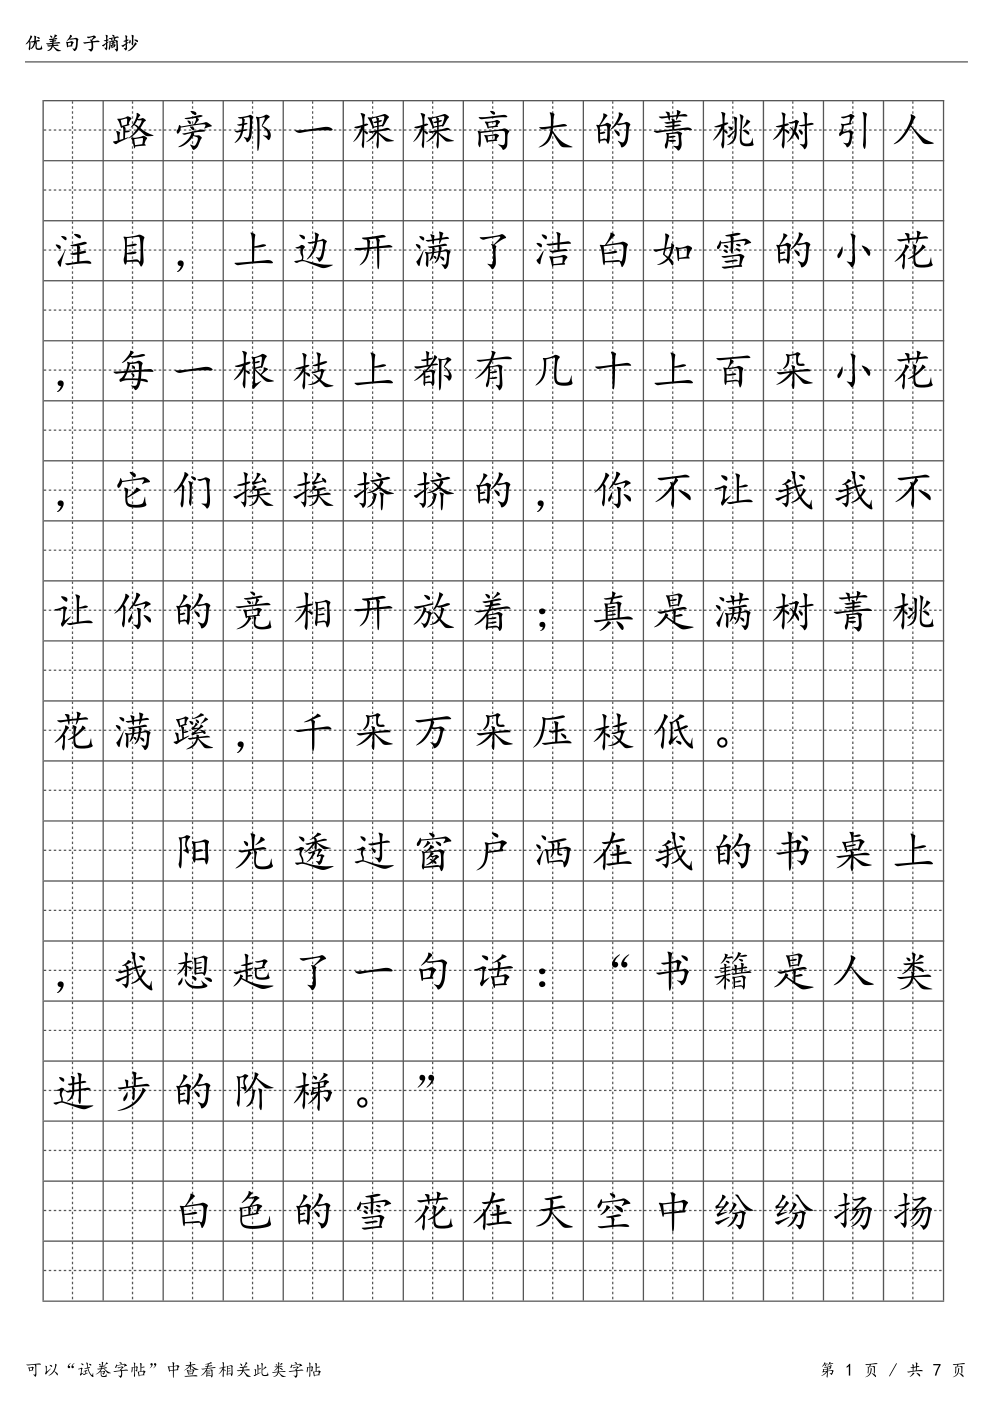 优美句子摘抄
路旁那一棵棵高大的菁桃树引人
注目，上边开满了洁白如雪的小花
，每一根枝上都有几十上百朵小花
，它们挨挨挤挤的，你不让我我不
让你的竞相开放着；真是满树菁桃
花满蹊，千朵万朵压枝低。
阳光透过窗户洒在我的书桌上
，我想起了一句话：“书籍是人类
进步的阶梯。”
白色的雪花在天空中纷纷扬扬
可以“试卷字帖”中查看相关此类字帖
第 1 页 / 共 7 页